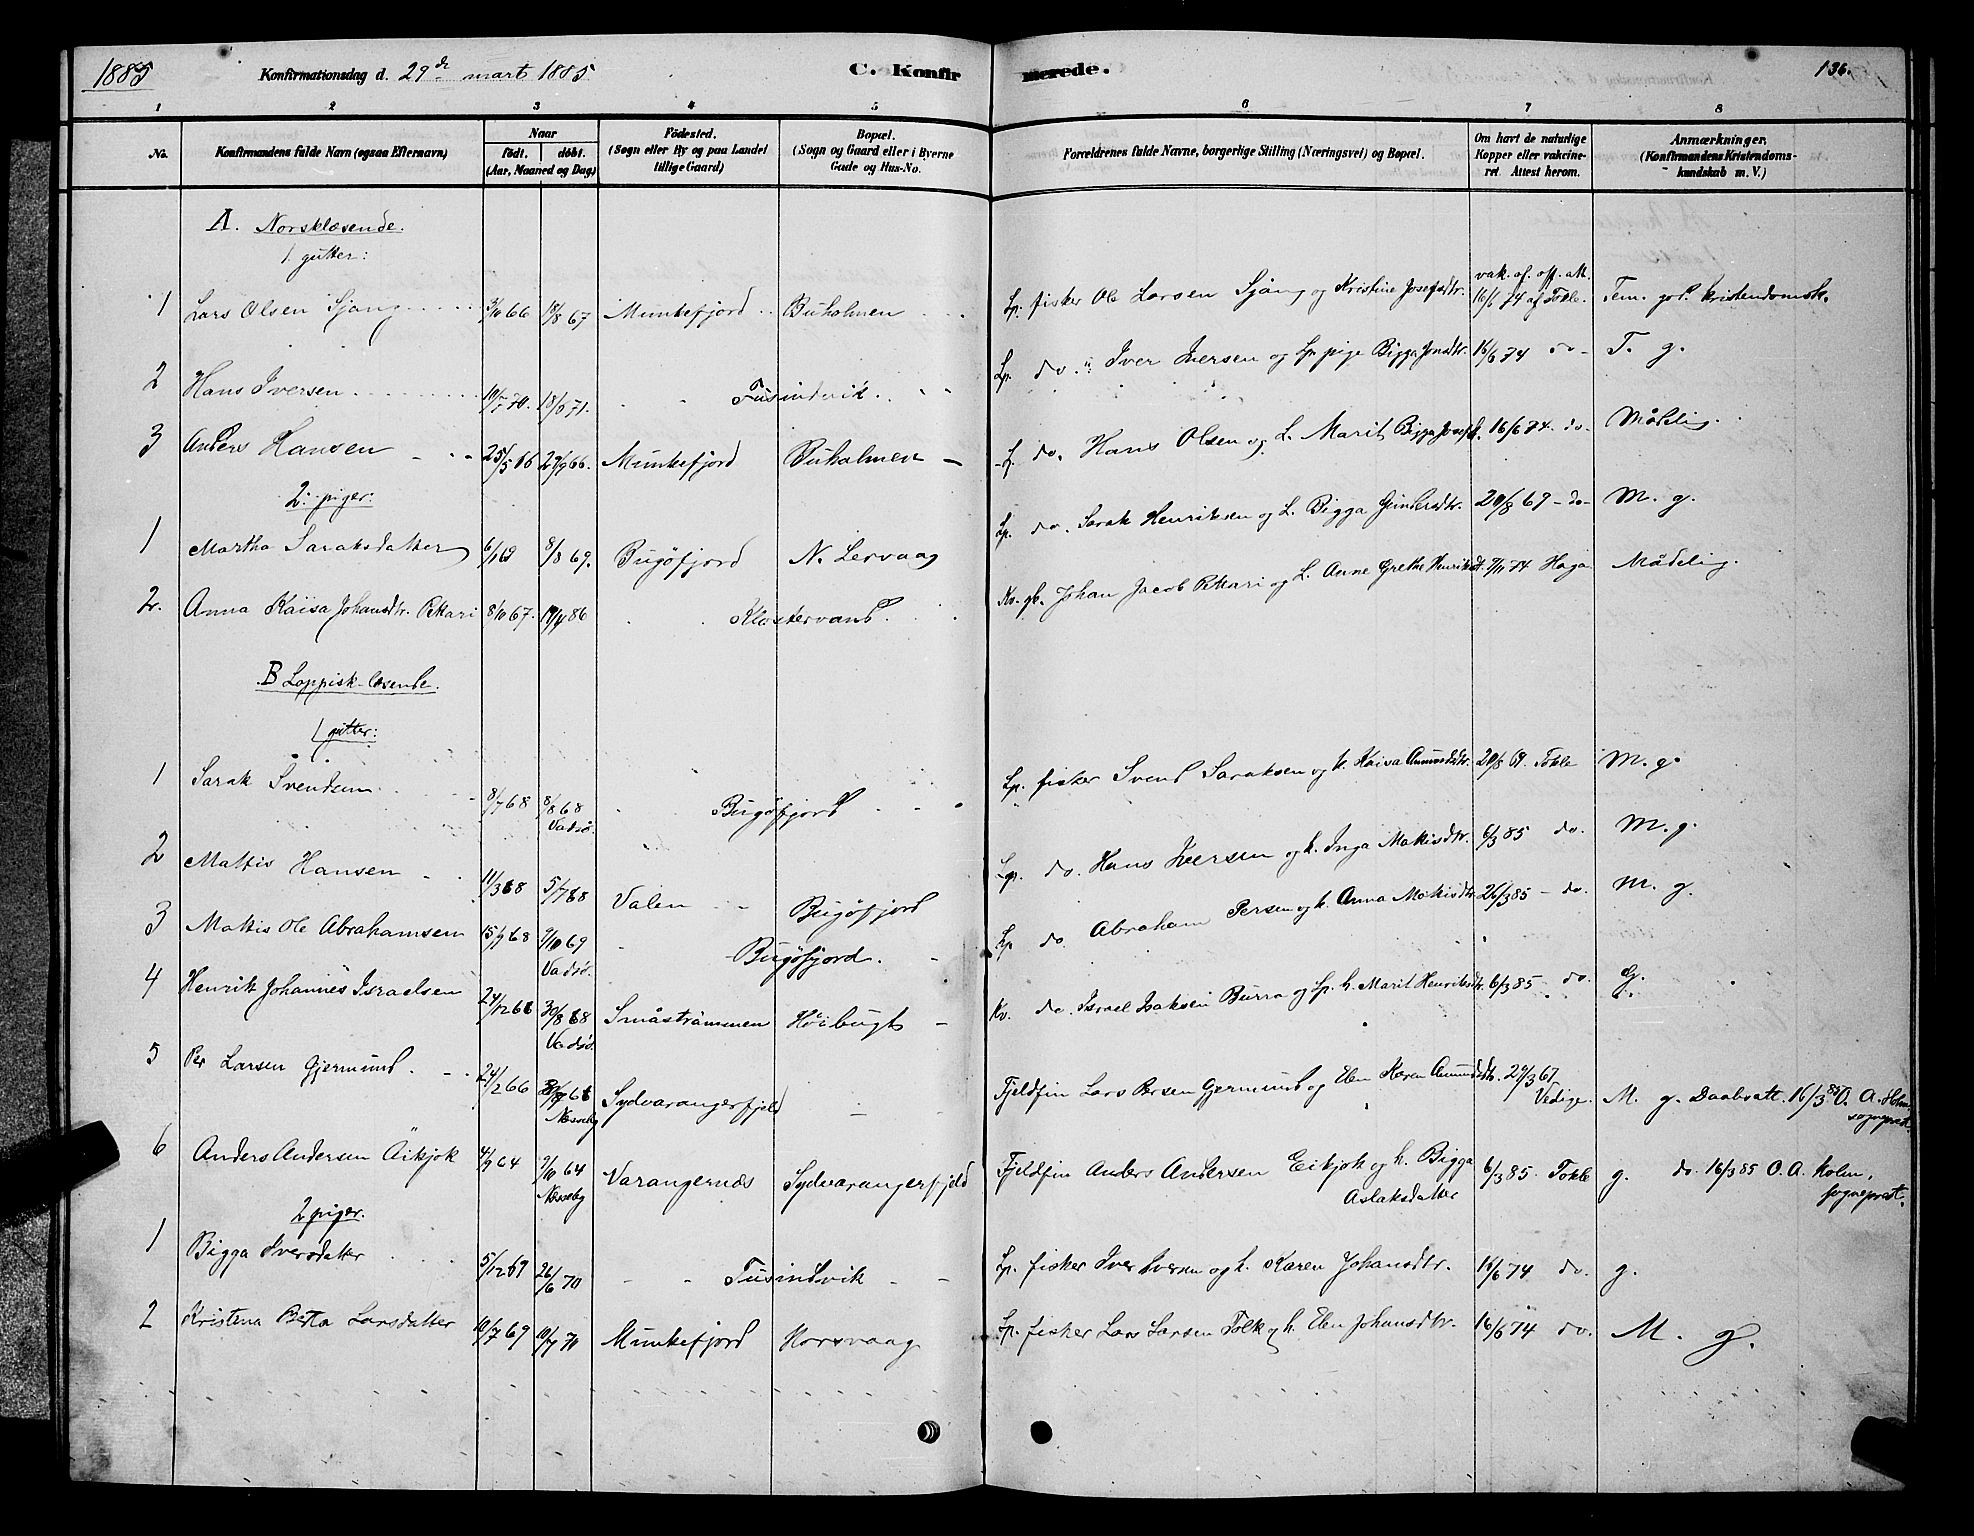 1885
Konfirmationsdag d. 29de mart 1885.
C. Konfirmerede.
136.
1 2 3 4 5 6 7 8
No.
Konfirmandens fulde Navn (ogsaa Efternavn)
Naar
födt. döbt.
(Aar, Maaned og Dag)
Födested.
(Sogn eller By og paa Landet
tillige Gaard)
Bopæl.
(Sogn og Gaard eller i Byerne
Gade og Hus-No.
Forældrenes fulde Navne, borgerlige Stilling (Næringsvei) og Bopæl.
Om havt de naturlige
Kopper eller vakcine-
ret. Attest herom.
Anmærkninger.
(Konfirmandens Kristendoms-
kundskab m. V.)
A. Norsklæsende.
1. gutter:
1 Lars Olsen Sjang 3/10 66 18/8 67 Munkefjord Buholmen Lp. fisker Ole Larsen Sjang og Kristine Josefsdtr. vak. af. off. att. 16/6 74 af Tokle. Tem. god kristendomsk.
2 Hans Iversen 10/7 70. 18/6 71. Tusindvik Lp. do. Iver Iversen og Lp pige Bigga Jonsdtr. 16/6 74 do T. g.
3 Anders Hansen 25/5 66 27/9 66. Munkefjord Buholmen L. do. Hans Olsen og L. Marit Bigga 16/6 74. do. Mådelig.
2. piger:
1 Martha Saraksdatter 6/1 69 8/8 69. Bugöfjord N. Lervaag Lp. do. Sarak Henriksen og L. Bigga 20/8 69 - do - M. g.
2. Anna Kaisa Johansdtr. Pekkari 8/10 67. Klostervand. Kv. gb. Johan Jacob Pekkari og L. Anne Grethe 7/11 74 Haga Mådelig.
B Lappisk-læsende.
1 gutter:
1 Sarak Svendsen 8/7 68 8/8 68 Vadsö. Bugöfjord Lp. fisker Svend Saraksen og h. Kaisa 20/8 69. Tokle M. g.
2 Mattis Hansen 11/3 68 5/7 68 Valen Bugöfjord Lp. do. Hans Iversen og h. Inga Matisdtr. 6/3 85 do. M. g.
3 Mattis Ole Abrahamsen 15/9 68 9/10 69 Vadsö. Bugöfjord. Lp. do. Abraham Persen og h. Anna Matisdtr 26/3 85 - do. M. g.
4 Henrik Johannes Israelsen 24/12 68 Vadsö. Småströmmen Höibugt Kv. do. Israel Isaksen Burra og Lp. h. Marit Henriksdtr. 6/3 85 do. G.
5 Per Larsen Gjermund. 24/2 66 Næsseby Sydvarangerfjeld Fjeldfin Lars Persen Gjermund og Elen Karen 29/3 67 M. g. Daabsatt. 16/3 85 O. A. Holm, sogneprest.
6 Anders Andersen Äikjok 4/9 64 9/10 64 Næsseby Varangernæs Sydvarangerfjeld Fjeldfin Anders Andersen Eikjok og h. Bigga Aslaksdatter 6/3 85. Tokle g. do. 16/3 85 O. A. Holm, sogneprest.
2 piger.
1 Bigga Iversdatter 5/12 69 26/6 70 Tusindvik Lp. fisker Iver Iversen og h. Karen Johansdtr. 16/6 74 do. g.
2 Kristena Berta Larsdatter 10/7 69 10/7 70 Munkefjord Horsvaag Lp. fisker Lars Larsen Folk og h. Elen Johansdtr. 16/6 74 do. M. g.